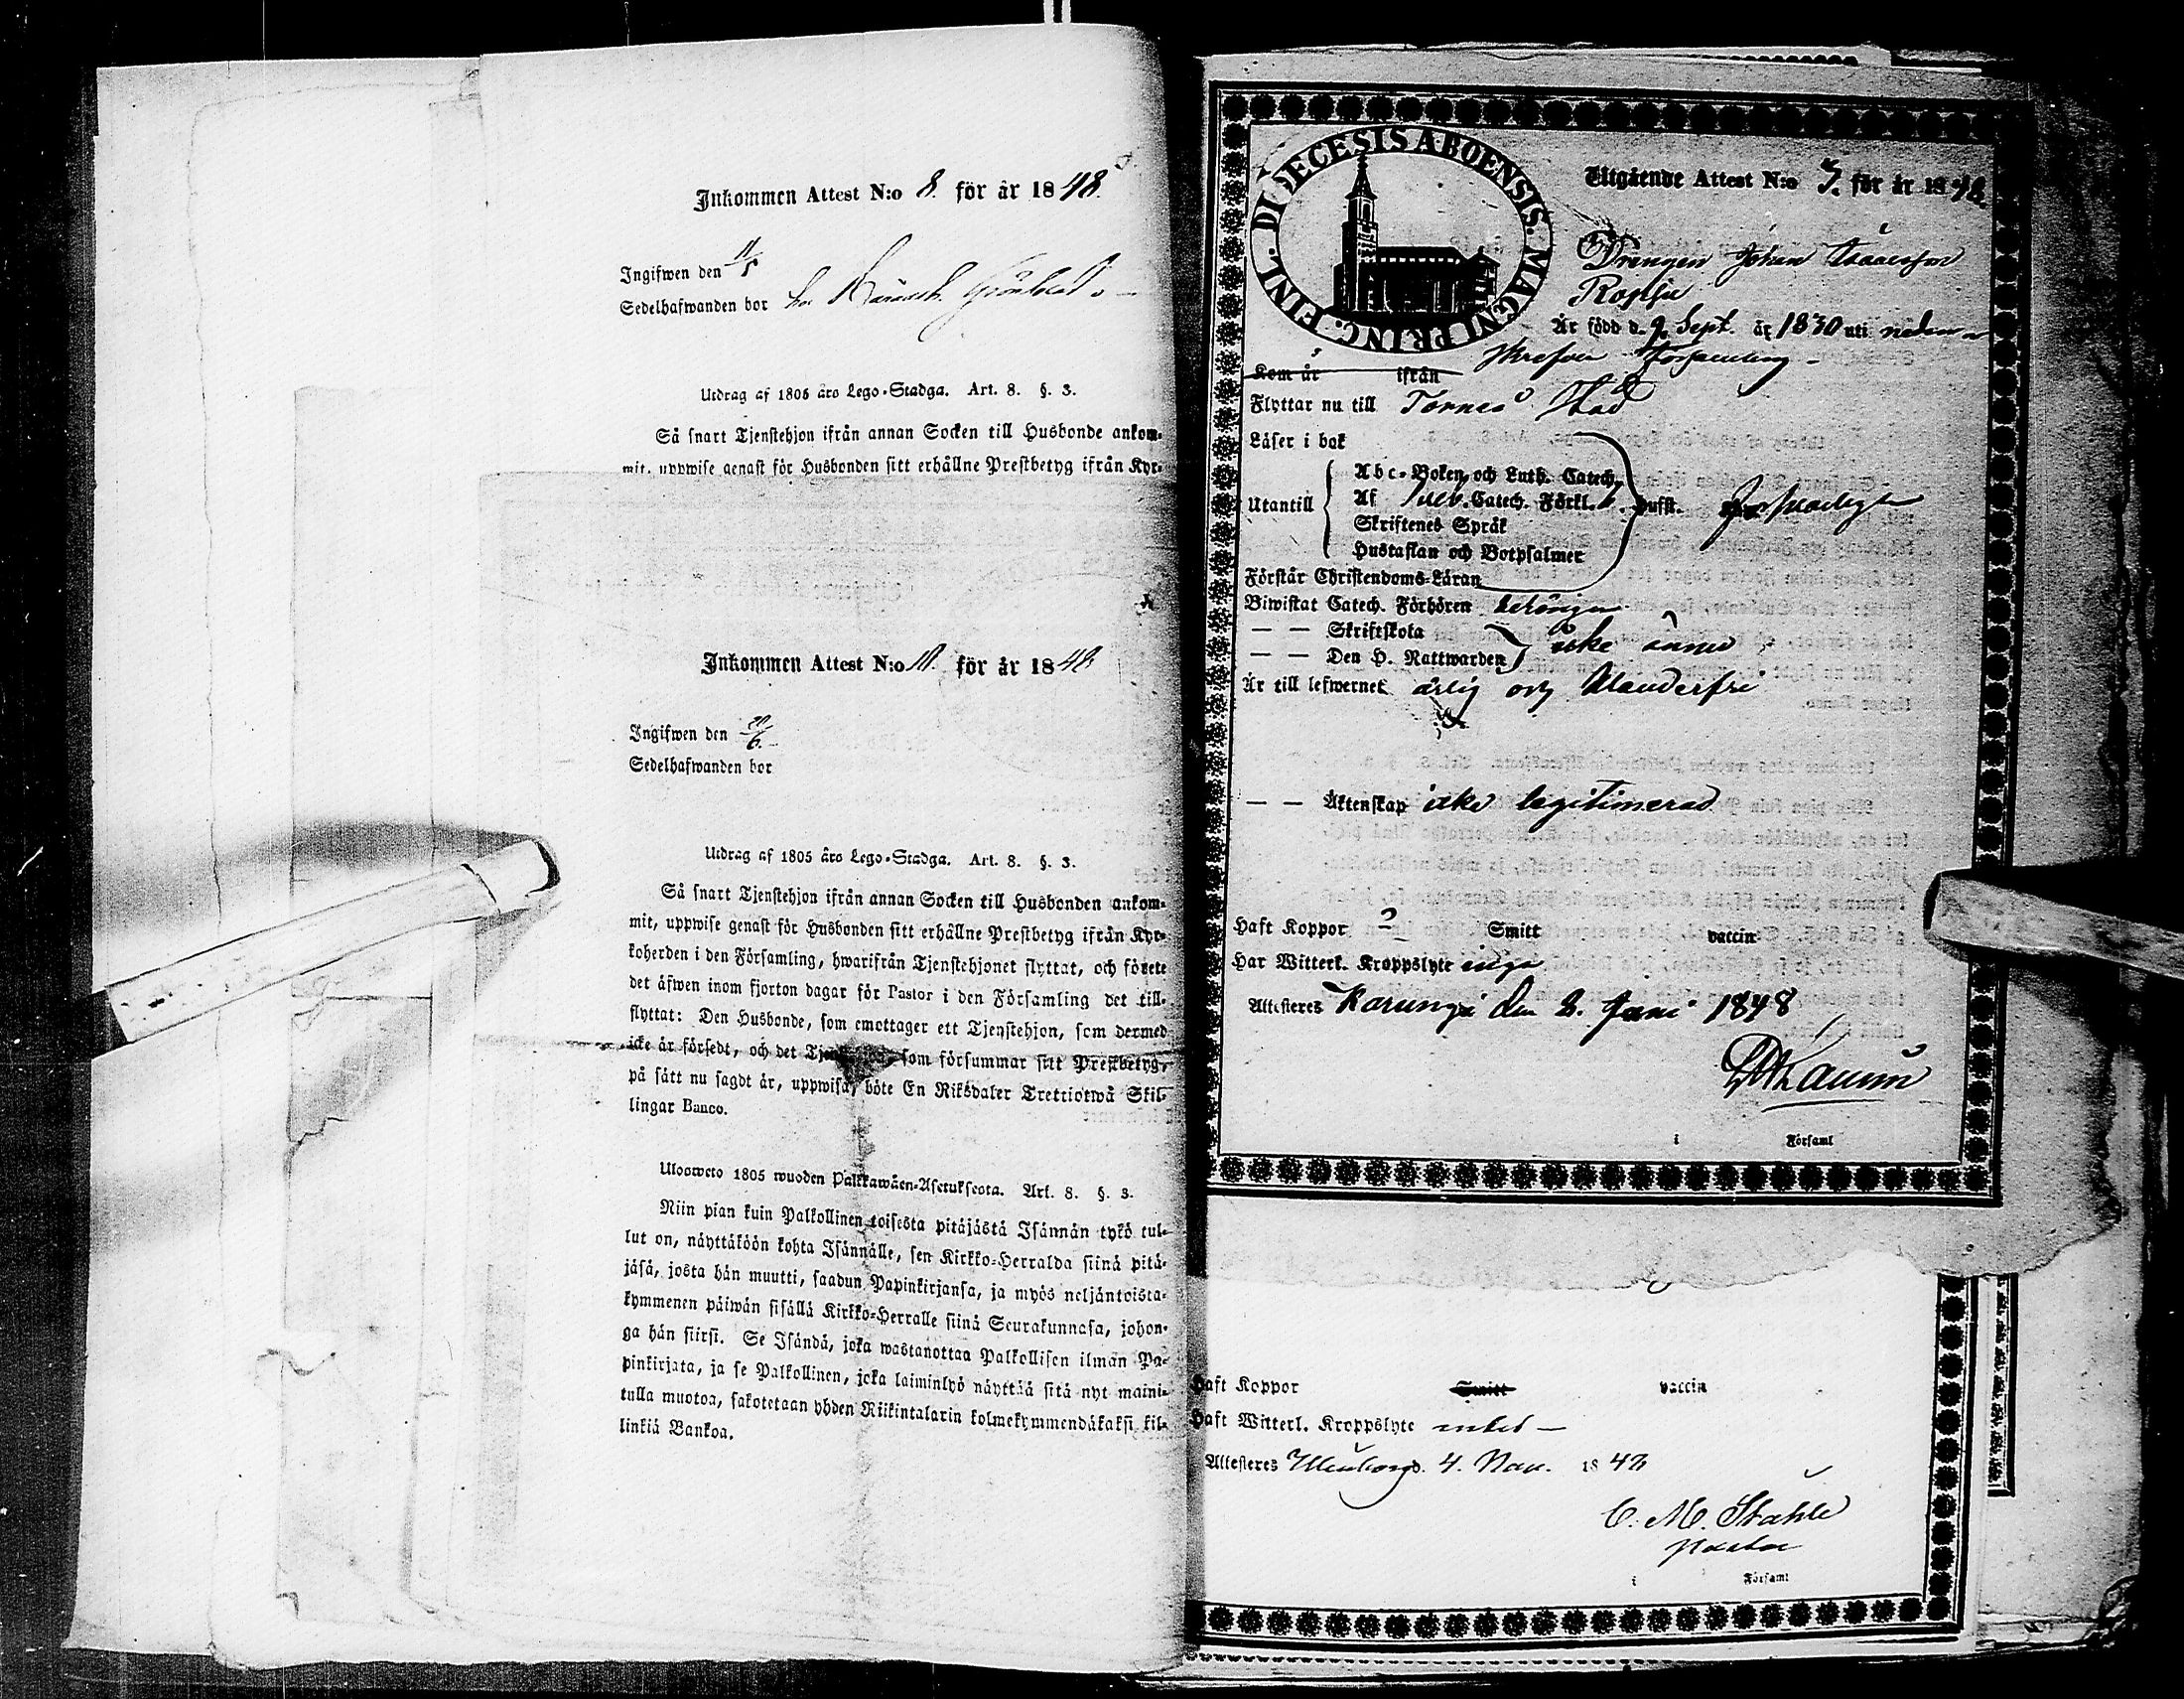 Inkommen Attest N:o 8. för år 1848.
Ingifwen den 11/5
Sedelhafwanden bor hos
Utdrag af 1805 års Lego-Stadga. Art. 8. §. 3.
Så snart Tjenstehjon ifrån annan Socken till Husbonde ankom-
mit, uppwise genast för Husbonden sitt erhållne Prestbetyg ifrån Kyr-
Inkommen Attest N:o för år 1848
Ingifwen den
Sedelhafwanden bor
Utdrag af 1805 års Lego-Stadga. Art. 8. §. 3.
Så snart Tjenstehjon ifrån annan Socken till Husbonden ankom-
mit, uppwise genast för Husbonden sitt erhållne Prestbetyg ifrån Kyr-
koherden i den Församling, hwarifrån Tjenstehjonet flyttat, och förete
det äfwen inom fjorton dagar för Pastor i den Församling det till-
flyttat: Den Husbonde, som emottager ett Tjenstehjon, som dermed
icke är försedt, och det som försummar sitt Prestbetyg,
på sätt nu sagdt är, uppwisa, böte En Riksdaler Trettiotwå Skil-
lingar Banco.
Ulosweto 1805 wuoden Palkkawäen-Asetuksesta. Art. 8. §. 3.
Niin pian kuin Palkollinen toisesta pitäjästä Isännän tykö tul-
lut on, näyttäköön kohta Isännälle, sen Kirkko-Herralda siinä pitä-
jäsä, josta hän muutti, saadun Papinkirjansa, ja myös neljäntoista-
kymmenen päiwän sisällä Kirkko-Herralle siinä Seurakunnasa, johon-
ga hän siirsi. Se Isändä, joka wastanottaa Palkollisen ilman Pa-
pinkirjata, ja se Palkollinen, joka laiminlyö näyttää sitä nyt maini-
tulla muotoa, sakotetaan yhden Riikintalarin kolmekymmendäkaksi kil-
linkiä Bankoa.
DIOECESIS ABOENSIS. MAGNI PRINC. FINL.
Utgående Attest N:o 7. för år 1848.
Drengen Johan Isaacsson
Är född d. 9 Sept. år 1830 uti nedan-
skrefven Församling
Kom år ifrån
Flyttar nu till Torneå Stad
Läser i bok
Abc-Boken och Luth. Catech.
Utantill Af Catech. Förkl.
Skriftenes Språk
Hustaflan och Botpsalmer
Förstår Christendoms-Läran
Biwistat Catech. Förhören
— — Skriftskola
— — Den H. Nattwarden icke ännu
Är till lefwernet ärlig och klanderfri
— — Äktenskap icke legitimerad
Haft Koppor ? Smitt vaccin
Har Witterl. Kroppslyte inga
Attesteres Karungi den 2. Juni 1848
i Församl
Haft Koppor Smitt vaccin
Haft Witterl. Kroppslyte intet —
Attesteres Uleåborg d. 4. Nov. 1848
C. M. Stahle
Pastor
i Församl